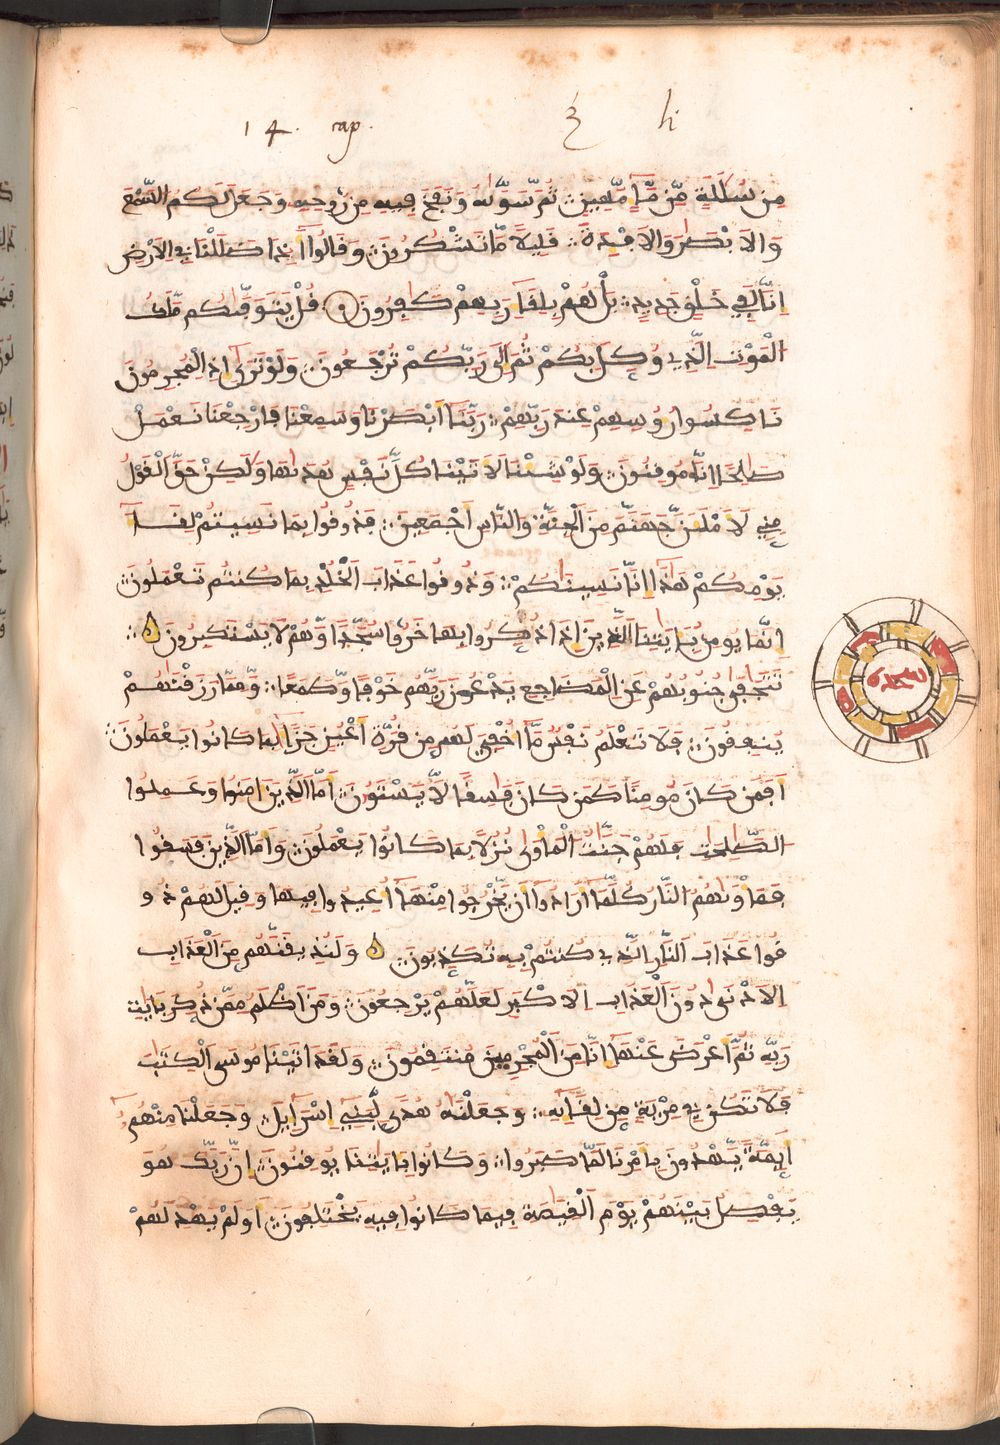 14. cap.
مِن سُلَٰلَةٖ مِّن مَّآءٖ مَّهِينٖ ثُمَّ سَوَّىٰهُ وَنَفَخَ فِيهِ مِن رُّوحِهِۦ وَجَعَلَ لَكُمُ السَّمْعَ
وَالَابْصَٰرَ وَالَافْـِٕدَةَ قَلِيلاً مَّا تَشْكُرُونَ وَقَالُوٓاْ أَ۟ذَا ضَلَلْنَا فِي الَارْضِ
إِنَّا لَفِي خَلْقٖ جَدِيدِۢ بَلْ هُم بِلِقَآءِ رَبِّهِمْ كَٰفِرُونَ قُلْ يَتَوَفّىٰكُم مَّلَكُ
الْمَوْتِ الَّذِي وُكِّلَ بِكُمْ ثُمَّ إِلَىٰ رَبِّكُمْ تُرْجَعُونَ وَلَوْ تَرَىٰٓ إِذِ الْمُجْرِمُونَ
نَاكِسُواْ رُءُوسِهِمْ عِندَ رَبِّهِمْ رَبَّنَآ أَبْصَرْنَا وَسَمِعْنَا فَارْجِعْنَا نَعْمَلْ
صَٰلِحًا إِنَّا مُوقِنُونَ وَلَوْ شِئْنَا لَأتَيْنَا كُلَّ نَفْسٍ هُدَىٰهَا وَلَٰكِنْ حَقَّ الْقَوْلُ
مِنِّي لَأَمْلَأَنَّ جَهَنَّمَ مِنَ الْجِنَّةِ وَالنَّاسِ أَجْمَعِينَ فَذُوقُواْ بِمَا نَسِيتُمْ لِقَآءَ
يَوْمِكُمْ هَٰذَآ إِنَّا نَسِينَٰكُمْ وَذُوقُواْ عَذَابَ الْخُلْدِ بِمَا كُنتُمْ تَعْمَلُونَ
إِنَّمَا يُومِنُ بِـَٔايَٰتِنَا الَّذِينَ إِذَا ذُكِّرُواْ بِهَا خَرُّواْ سُجَّدًا وَّهُمْ لَا يَسْتَكْبِرُونَ
تَتَجَافَىٰ جُنُوبُهُمْ عَنِ الْمَضَاجِعِ يَدْعُونَ رَبَّهُمْ خَوْفًا وَّطَمَعًا وَّمِمَّا رَزَقْنَٰهُمْ
يُنفِقُونَ فَلَا تَعْلَمُ نَفْسٌ مَّآ أُخْفِيَ لَهُم مِّن قُرَّةِ أَعْيُنٍ جَزَآءَۢ بِمَا كَانُواْ يَعْمَلُونَ
أَفَمَن كَانَ مُومِنًا كَمَن كَانَ فَاسِقًا لَّا يَسْتَوُۥنَ أَمَّا الَّذِينَ ءَامَنُواْ وَعَمِلُواْ
الصَّٰلِحَٰتِ فَلَهُمْ جَنَّٰتُ الْمَأْوَىٰ نُزُلَۢا بِمَا كَانُواْ يَعْمَلُونَ وَأَمَّا الَّذِينَ فَسَقُواْ
فَمَأْوَىٰهُمُ النَّارُ كُلَّمَآ أَرَادُوٓاْ أَن يَّخْرُجُواْ مِنْهَآ أُعِيدُواْ فِيهَا وَقِيلَ لَهُمْ ذُو
قُواْ عَذَابَ النَّارِ الَّذِي كُنتُم بِهِۦ تُكَذِّبُونَ وَلَنُذِيقَنَّهُم مِّنَ الْعَذَابِ
الَادْنَىٰ دُونَ الْعَذَابِ الَاكْبَرِ لَعَلَّهُمْ يَرْجِعُونَ وَمَنَ اَظْلَمُ مِمَّن ذُكِّرَ بِـَٔايَٰتِ
رَبِّهِۦ ثُمَّ أَعْرَضَ عَنْهَآ إِنَّا مِنَ الْمُجْرِمِينَ مُنتَقِمُونَ وَلَقَدَ اتَيْنَا مُوسَى الْكِتَٰبَ
فَلَا تَكُن فِي مِرْيَةٖ مِّن لِّقَآئِهِۦ وَجَعَلْنَٰهُ هُدًى لِّبَنِيٓ إِسْرَآءِيلَ وَجَعَلْنَا مِنْهُمُۥٓ
أَيِمَّةً يَّهْدُونَ بِأَمْرِنَا لَمَّا صَبَرُواْ وَكَانُواْ بِـَٔايَٰتِنَا يُوقِنُونَ إِنَّ رَبَّكَ هُوَ
يَفْصِلُ بَيْنَهُمْ يَوْمَ الْقِيَٰمَةِ فِيمَا كَانُواْ فِيهِ يَخْتَلِفُونَ أَوَلَمْ يَهْدِ لَهُمْ